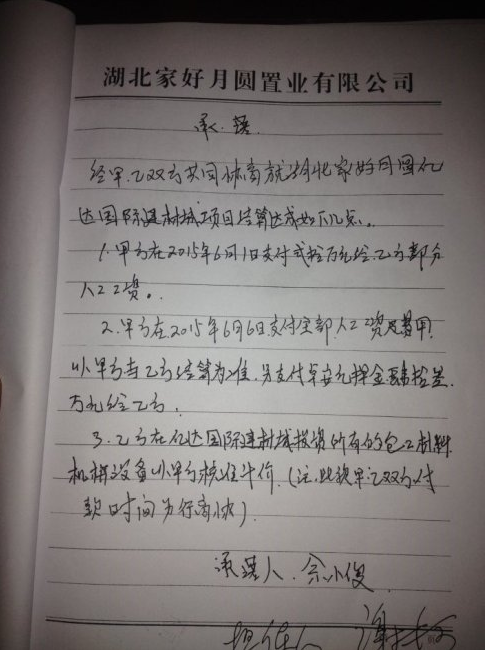 湖北家好月圆置业有限公司
承诺
经甲.乙双方共同协商就湖北家好月圆亿
达国际建材城项目结算达成如下几点。
1.甲方在2015年6月1日支付贰拾万元给乙方部分
人工工资。
2.甲方在2015年6月6日支付全部人工工资及费用
以甲方与乙方结算为准.另支付 押金 拾
万元给乙方.
3.乙方在亿达国际建材城投资所有的包工材料
机械设备以甲方核准计价.(注.此款甲.乙双方付
款日时间另行商协)
承诺人.余小俊
担保人 谢